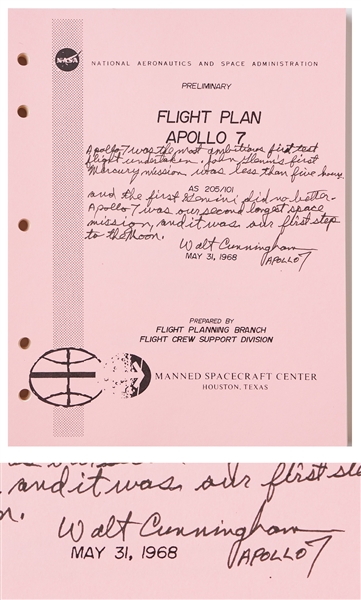 NASA
NATIONAL AERONAUTICS AND SPACE ADMINISTRATION
PRELIMINARY
FLIGHT PLAN
APOLLO 7
Apollo 7 was the most ambitious first test
flight undertaken. John Glenn's first
Mercury mission was less than five hours
AS 205/101
and the first Gemini did no better.
Apollo 7 was our second longest space
mission, and it was our first step
to the Moon.
Walt Cunningham
MAY 31, 1968 APOLLO 7
PREPARED BY
FLIGHT PLANNING BRANCH
FLIGHT CREW SUPPORT DIVISION
MANNED SPACECRAFT CENTER
HOUSTON, TEXAS
and it was our first ste
n.
Walt Cunningham
MAY 31, 1968 APOLLO 7